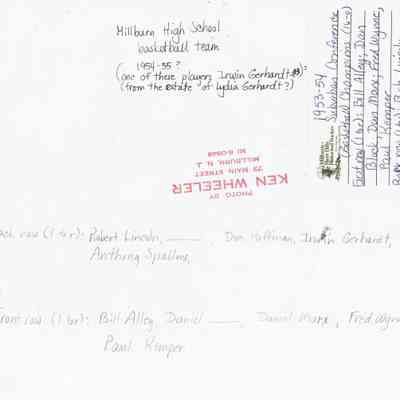 Millburn High School
basketball team
1954-55 ?
(one of these players, Irwin Gerhardt ?):
(from the estate of Lydia Gerhardt?)
PHOTO BY
KEN WHEELER
75 MAIN STREET
MILLBURN, N. J.
1953-54
Suburban Conference
Basketball Champions (16-5)
First row (l to r): Bill Alley, Dan
Block, Dan Marx, Fred Wynne,
Paul Kemper
Back row (l to r): Bob
back row (l to r): Robert Lincoln, ——, Don Hoffman, Irwin Gerhardt,
Anthony
Front row (l to r): Bill Alley, Daniel ——, Daniel Marx, Fred Wynn
Paul Kemper